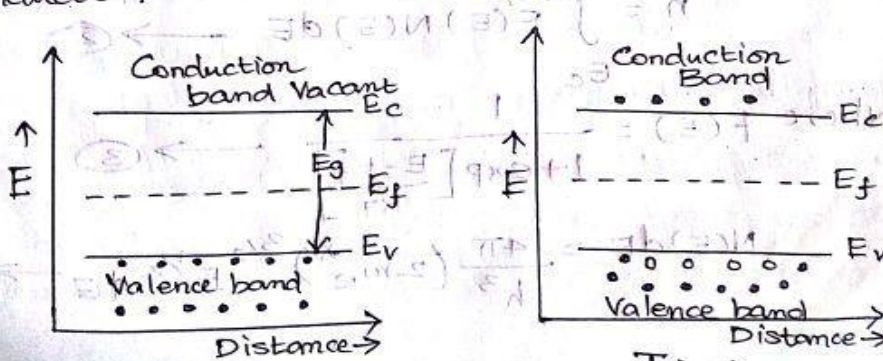 Conduction
band Vacant
Ec
↑
E
Eg
Ef
Ev
Valence band
Distance→
Conduction
Band
Ec
↑
E
Ef
Ev
Valence band
Distance→